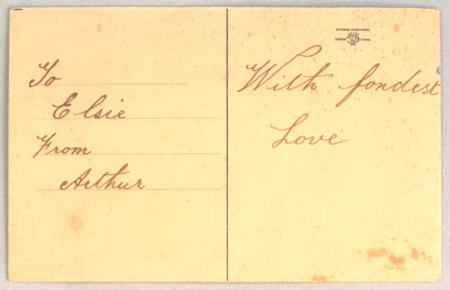 To
Elsie
From
Arthur
With fondest
Love